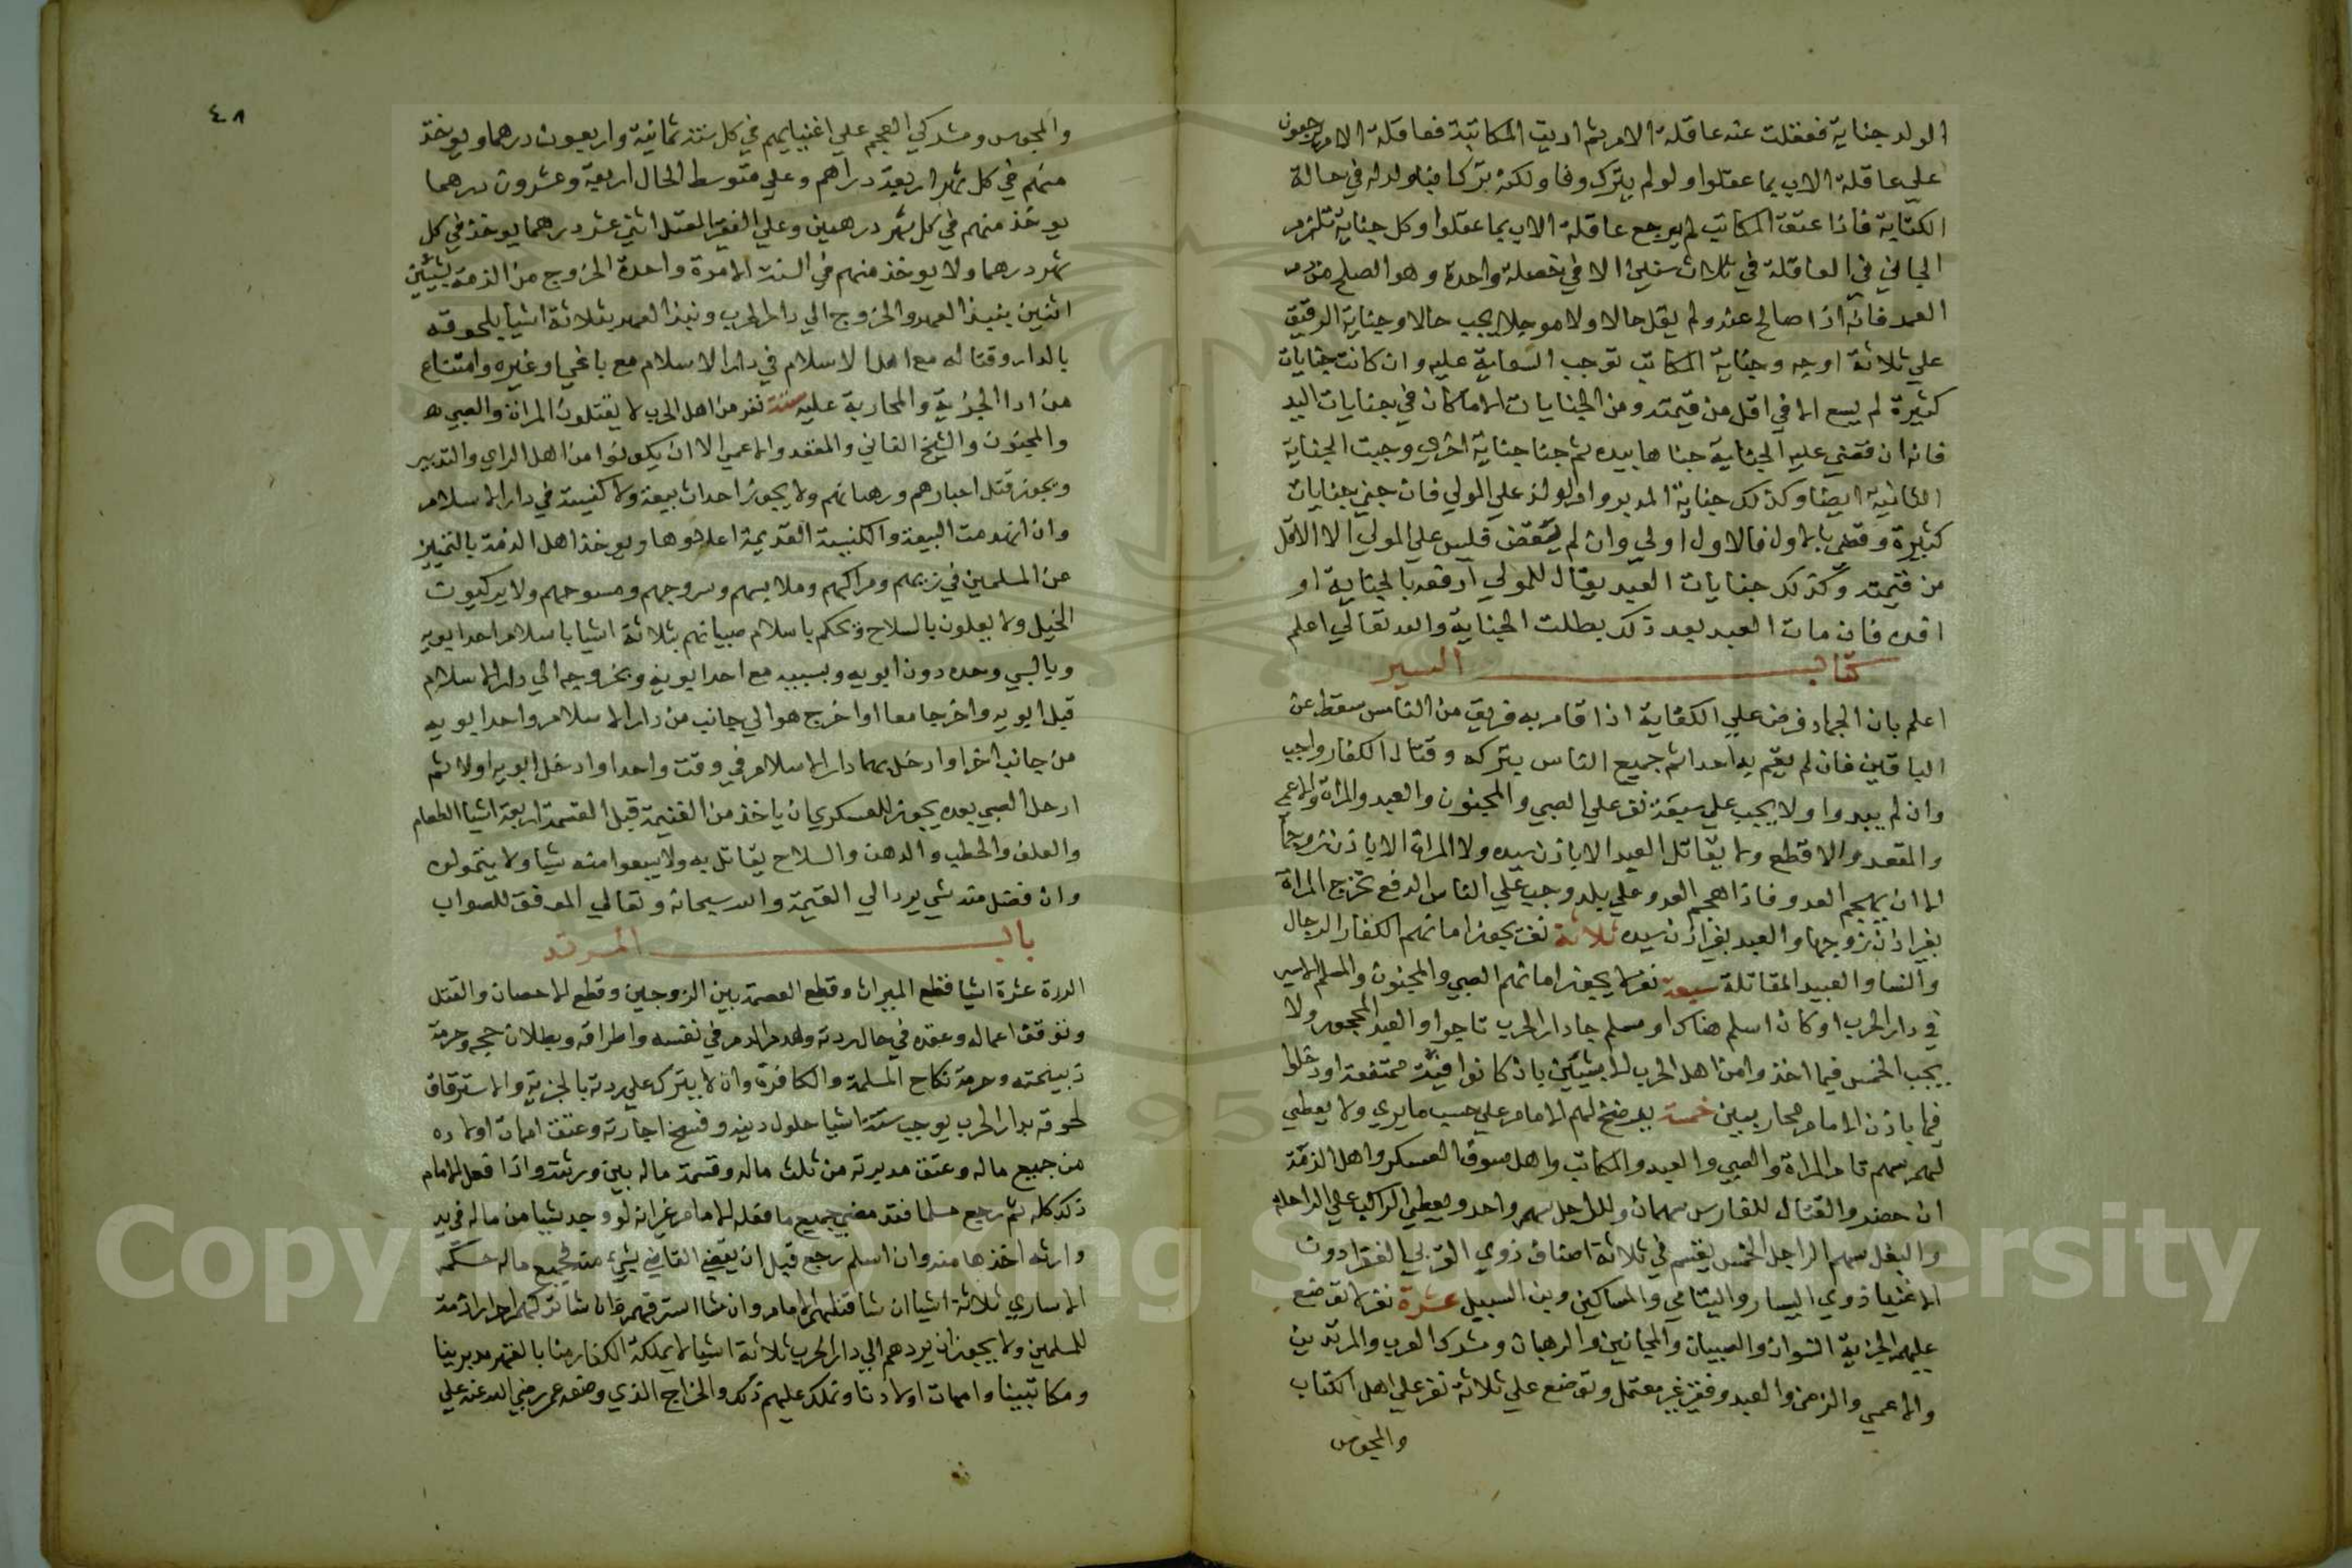 الولد جناية فعقلت عنه عاقلة الام ثم اديت المكاتبة فعاقلة الام يرجعون
على عاقلة الاب بما عقلوا ولو لم يترك وفا ولكنه ترك ابنا ولد له في حالة
الكتابة فاذا عتق المكاتب لم يرجع عاقلة الاب بما عقلوا وكل جناية تلزم
الجاني في العاقلة في ثلاث سنين الا في خصلة واحدة وهو الصلح من دم
العمد فانه اذا صالح عنه ولم يقل حالا ولا موجلا يجب حالا وجناية الرقيق
علي ثلاثة اوجه وجناية المكاتب توجب السعاية عليه وان كانت جنايات
كثيرة لم يسع الا في اقل من قيمته ومن الجنايات الا ما كان في جنايات اليد
فانه ان قضي عليه الجناية جناها بيده ثم جنا جناية اخري وجبت الجناية
الثانية ايضا وكذلك جناية المدبر وام الولد علي المولي فان جني جنايات
كثيرة وقضي بالاول فالاول اولي وان لم يقض فليس علي المولي الا الاقل
من قيمته وكذلك جنايات العبد يقال للمولي ادفعه بالجناية او
افده فان مات العبد بعد ذلك بطلت الجناية والله تعالي اعلم
كتاب السير
اعلم بان الجهاد فرض علي الكفاية اذا قام به فريق من الناس سقط عن
الباقين فان لم يقم به احد اثم جميع الناس بتركه وقتال الكفار واجب
وان لم يبدوا ولا يجب علي سبعة نفر علي الصبي والمجنون والعبد والمراة والاعمي
والمقعد والاقطع ولا يقاتل العبد الا باذن سيده ولا المراة الا باذن زوجها
الا ان يهجم العدو فاذا هجم العدو علي بلد وجب علي الناس الدفع تخرج المراة
بغير اذن زوجها والعبد بغير اذن سيده ثلاثة نفر يجوز امانهم الكفار الرجال
والنسا والعبيد المقاتلة سبعة نفر لا يجوز امانهم الصبي والمجنون والمسلم الاسير
في دار الحرب او كان اسلم هناك او مسلم جا دار الحرب تاجرا والعبد المحجور ولا
يجب الخمس فيما اخذوا من اهل الحرب الا بشيئين بان كانوا فية ممتنعة او دخلوا
فيها باذن الامام محاربين خمسة يرضخ لهم الامام علي حسب ما يري ولا يعطي
لهم سهم تام المراة والصبي والعبد والمكاتب واهل سوق العسكر واهل الذمة
ان حضروا القتال للفارس سهمان وللراجل سهم واحد ويعطي الراكب علي الراحلة
والبغل سهم الراجل الخمس يقسم في ثلاثة اصناف ذوي القربي الفقرا دون
الاغنيا ذوي اليسار واليتامي والمساكين وبن السبيل عشرة نفر لا توضع
عليهم الجزية النسوان والصبيان والمجانين والرهبان ومشركوا العرب والمرتدين
والاعمي والزمن والعبد وفقير غير معتمل وتوضع علي ثلاثة نفر علي اهل الكتاب
والمجوس
٤٨
والمجوس ومشركي العجم علي اغنيايهم في كل سنة ثمانية واربعون درهما ويوخذ
منهم في كل شهر اربعة دراهم وعلي متوسط الحال اربعة وعشرون درهما
يوخذ منهم في كل شهر درهمين وعلي الفقير المعتمل اثني عشر درهما يوخذ في كل
شهر درهما ولا يوخذ منهم في السنة الا مرة واحدة الخروج من الذمة بشيئين
اثنين بنبذ العهد والخروج الي دار الحرب ونبذ العهد بثلاثة اشيا بلحوقه
بالدار وقتاله مع اهل الاسلام في دار الاسلام مع باغي او غيره وامتناع
من ادا الجزية والمحاربة عليه ستة نفر من اهل الحرب لا يقتلون المراة والصبي
والمجنون والشيخ الفاني والمقعد والاعمي الا ان يكونوا من اهل الراي والتدبير
ويجوز قتل احبارهم ورهبانهم ولا يجوز احداث بيعة ولا كنيسة في دار الاسلام
وان انهدمت البيعة والكنيسة القديمة اعادوها ويوخذ اهل الذمة بالتمييز
عن المسلمين في زيهم ومراكبهم وملابسهم وسروجهم ولا يركبون
الخيل ولا يعلون بالسلاح ويحكم باسلام صبيانهم بثلاثة اشيا باسلام احد ابويه
وبالسبي وحده دون ابويه وبسببه مع احد ابويه وبخروجه الي دار الاسلام
قبل ابويه واخرجا معا او اخرج هو الي جانب من دار الاسلام واحد ابويه
من جانب اخر او ادخل بهما دار الاسلام في وقت واحد او ادخل ابويه اولا ثم
ادخل الصبي بعده يجوز للعسكري ان ياخذ من الغنيمة قبل القسمة اربعة اشيا الطعام
والعلف والحطب والدهن والسلاح يقاتل به ولا يبيعوا منه شيا ولا يتمولوه
وان فضل منه شي يرد الي القيمة والله سبحانه وتعالي الموفق للصواب
باب المرتد
الردة عشرة اشيا قطع الميراث وقطع العصمة بين الزوجين وقطع الاحصان والقتل
وتوقف اعماله وعقده في حال ردته وهدر الدم في نفسه واطرافه وبطلان حجه وحرمة
ذبيحته وحرمة نكاح المسلمة والكافرة وان لا يترك علي ردته بالجزية والاسترقاق
لحوقه بدار الحرب يوجب ستة اشيا حلول دينه وفسخ اجارته وعتق امهات اولاده
من جميع ماله وعتق مدبرته من ثلث ماله وقسمة ماله بين ورثته واذا فعل الامام
ذلك كله ثم رجع مسلما فقد مضي جميع ما فعله الامام غير انه لو وجد شيا من ماله في يد
وارثه اخذها منه وان اسلم رجع قبل ان يقضي القاضي بشيء منه فجميع ماله حكم
الاساري ثلاثة اشيا ان شا قتلهم الامام وان شا استرقهم وان شا تركهم احرارا ذمة
للمسلمين ولا يجوز ان يردهم الي دار الحرب ثلاثة اشيا لا يملكه الكفار منا بالقهر مدبرينا
ومكاتبينا وامهات اولادنا ونملك عليهم ذلك والخراج الذي وضعه عمر رضي الله عنه علي
Copyright © King Saud University